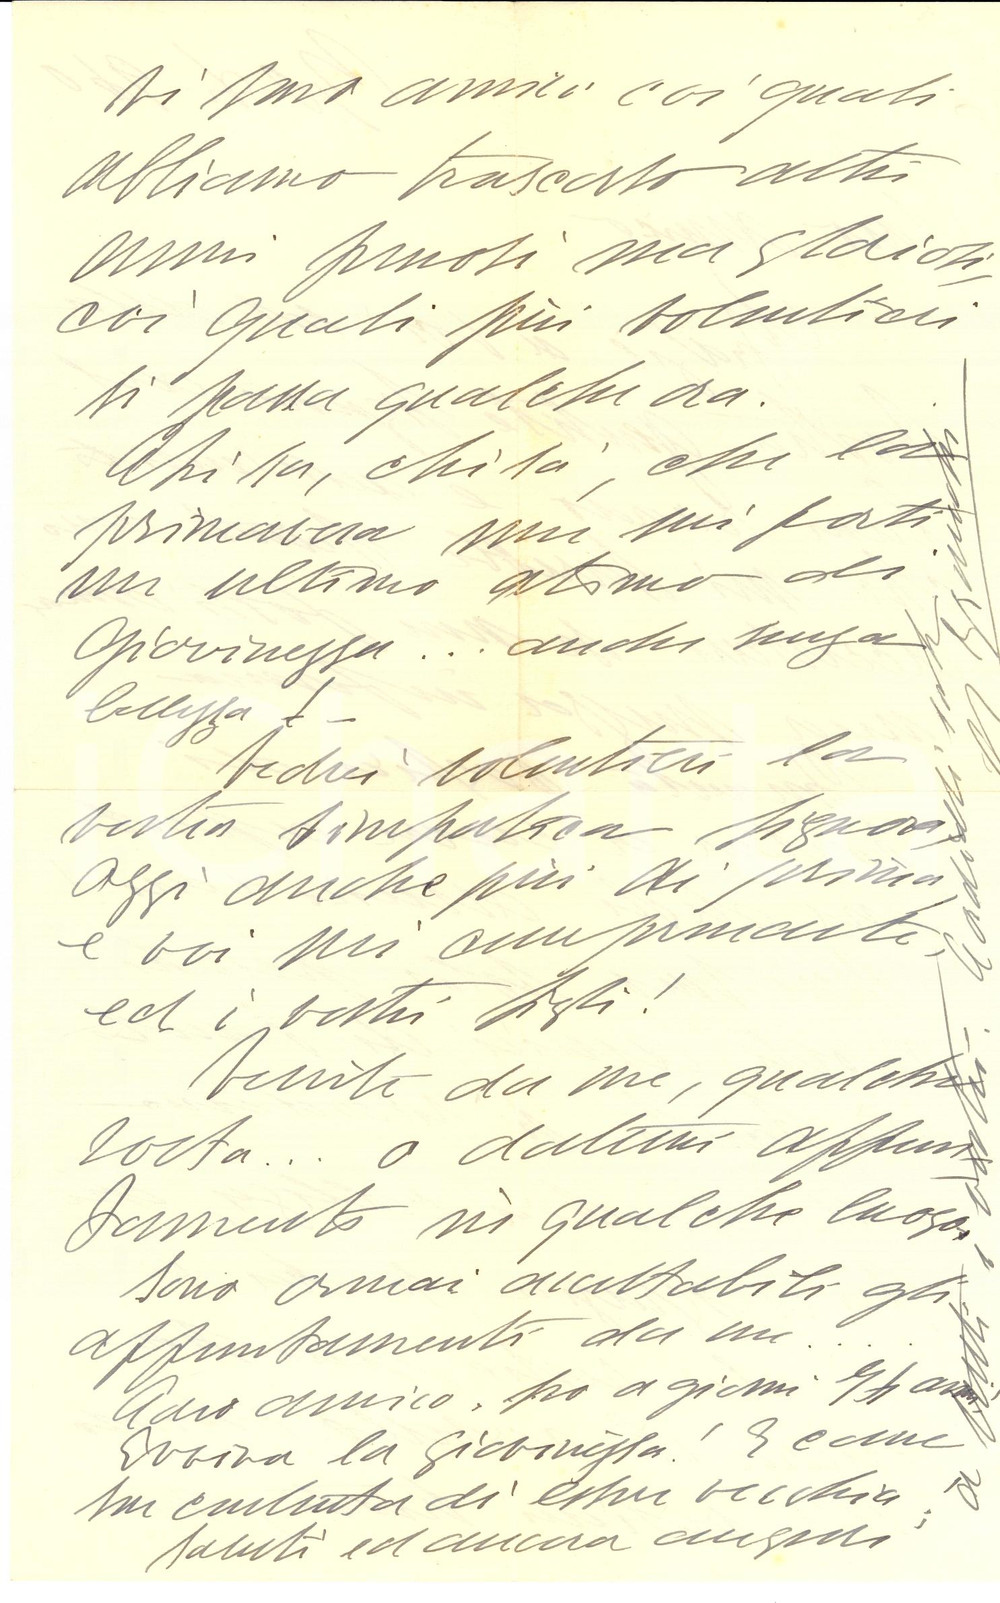 vi sono amici coi quali
abbiamo trascorso altri
anni penosi ma gloriosi,
coi quali più volentieri
si passa qualche ora.
Chi sa, chi sà, che la
primavera non mi porti
un ultimo attimo di
Giovinezza... anche senza
bellezza! -
Vedrei volentieri la
vostra simpatica signora,
oggi anche più di prima,
e voi mi comprendete,
ed i vostri figli!
Venite da me, qualche
volta... o datemi appun
tamento in qualche luogo,
sono ormai accettabili gli
appuntamenti da me....
Caro amico, ho a giorni anni
Evviva la giovinezza! E come
son contenta di esser vecchia;
saluti ed ancora auguri
a tutti e vogliate. Cordiali saluti